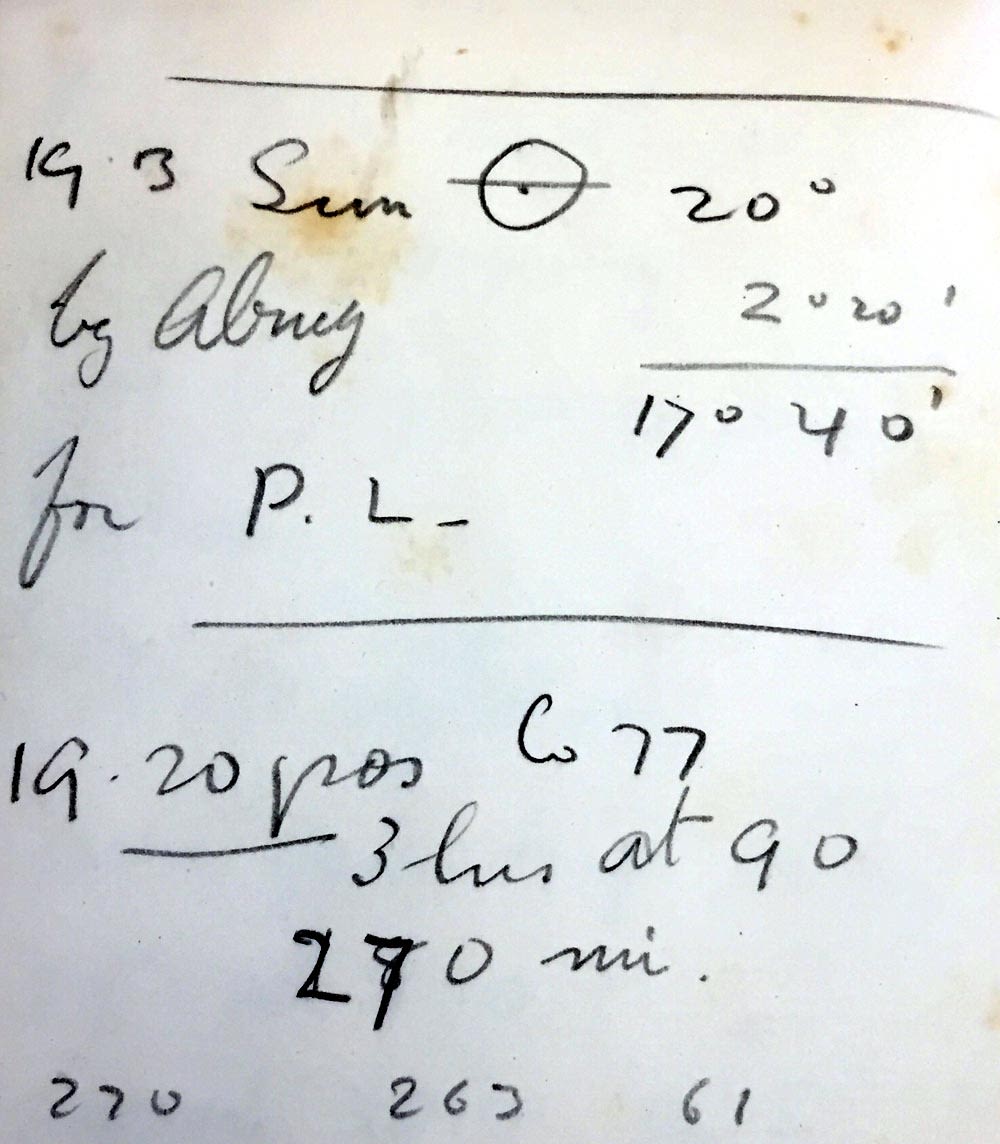 19.3 Sun ⊖ 20°
by Abney 2°20'
17° 40'
for P. L-
19.20 pos Co 77
3 hrs at 90
270 mi.
270 263 61